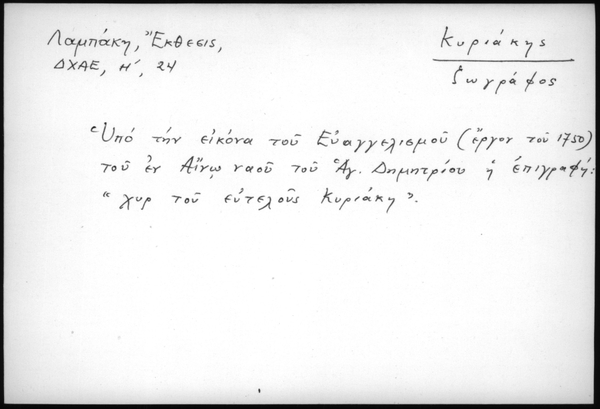 Λαμπάκη, Ἔκθεσις,
ΔΧΑΕ, Η΄, 24
Κυριάκης
ζωγράφος
Ὑπό τήν εἰκόνα τοῦ Εὐαγγελισμοῦ (ἔργον τοῦ 1750)
τοῦ ἐν Αἴνῳ ναοῦ τοῦ Ἁγ. Δημητρίου ἡ ἐπιγραφή:
"χυρ τοῦ εὐτελοῦς Κυριάκη".